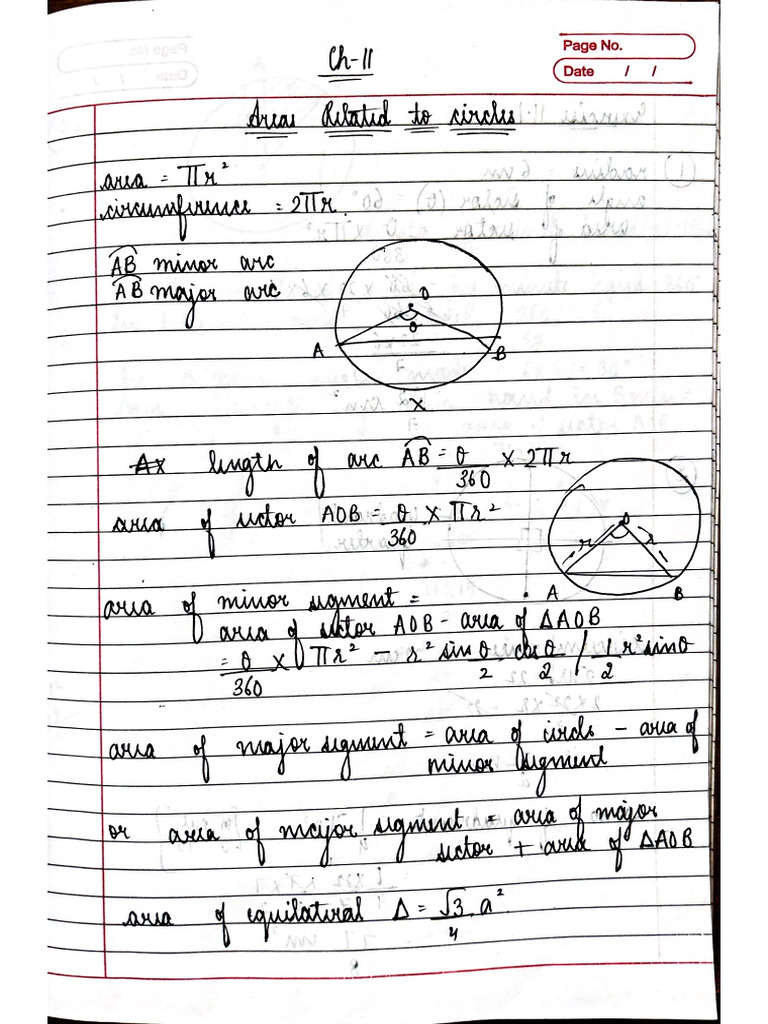 Page No.
Date / /
Ch-11
Areas Related to circles
area = πr²
circumference = 2πr.
A͡B minor arc
A͡B major arc
O
θ
A
B
X
length of arc A͡B = θ/360 × 2πr
area of sector AOB = θ/360 × πr²
O
r
r
A
B
area of minor segment =
area of sector AOB - area of ΔAOB
= θ/360 × πr² - r² sin θ/2 cos θ/2 / 1/2 r² sinθ
area of major segment = area of circle - area of
minor segment
or area of major segment = area of major
sector + area of ΔAOB
area of equilateral Δ = √3/4 a²